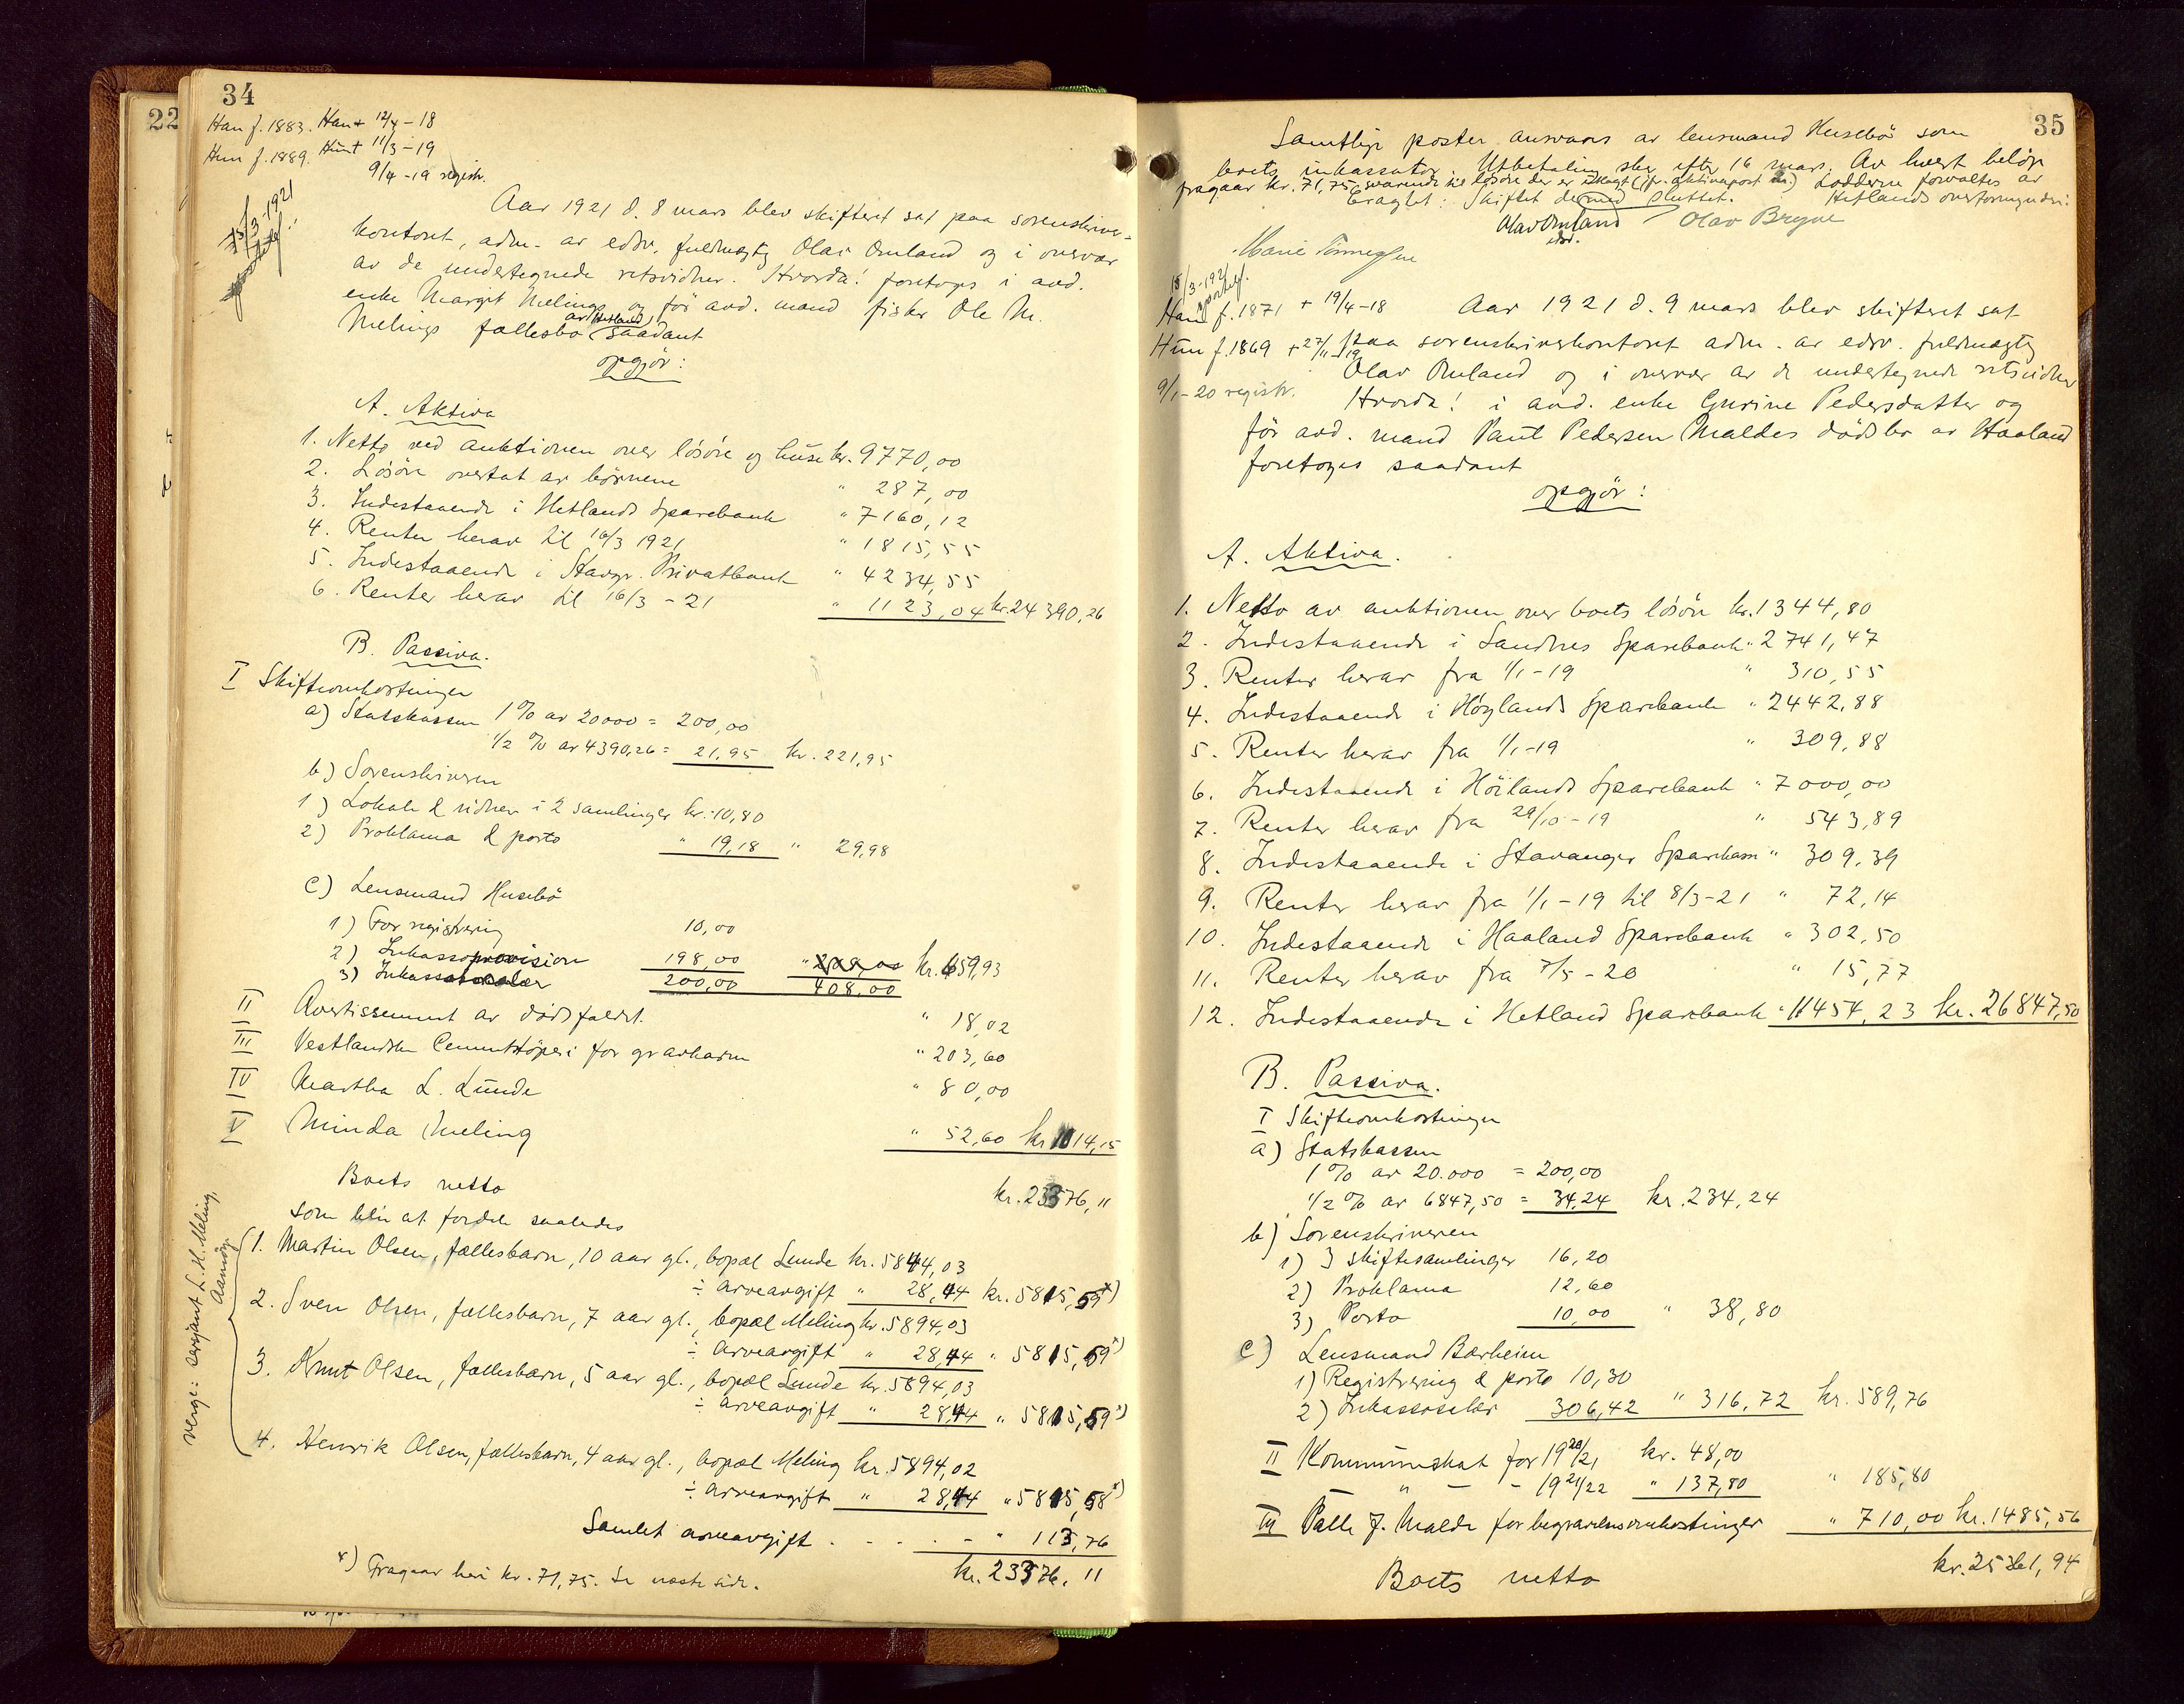 22
34
Han f. 1883. Han + 12/4 - 18
Hun f. 1889. Hun + 11/3 - 19
9/4 - 19 registr.
Aar 1921 d. 8 mars blev skifteret sat paa sorenskriver-
kontoret, adm. av edsv. fuldmægtig Olav Omland og i overvær
av de undertegnede retsvidner. Hvorda! foretoges i avd.
enke Margit Melings og før avd. mand fisker Ole M.
Melings fællesbo av Hetland, saadant
opgjør:
A. Aktiva
1. Netto ved auktionen over løsøre og huse kr. 9770,00
2. Løsøre overtat av børnene " 287,00
3. Indestaaende i Hetlands Sparebank " 7160,12
4. Renter herav til 16/3 1921 " 1815,55
5. Indestaaende i Stavgr. Privatbank " 4234,55
6. Renter herav til 16/3 - 21 " 1123,04 kr. 24390,26
B. Passiva.
I Skifteomkostninger
a) Statskassen 1% av 20000 = 200,00
1/2 % av 4390,26 = 21,95 kr. 221,95
b) Sorenskriveren
1) Lokale & vidner i 2 samlinger kr. 10,80
2) Proklama & porto " 19,18 " 29,98
c) Lensmand Husebø
1) For registrering 10,00
2) Inkassoprovision 198,00 kr. 659,93
3) Inkassosalær 200,00 408,00
II Avertissement av dødsfaldet " 18,02
III Vestlandske Cementstøperi for gravkarm " 203,60
IV Martha L. Lunde " 80,00
V Minda Meling " 52,60 kr. 1014,15
Boets netto kr. 23376,11
som blir at fordele saaledes
verge: sersjant L. H. Meling,
1. Martin Olsen, fællesbarn, 10 aar gl., bopæl Lunde kr. 5844,03
÷ arveavgift " 28,44 kr. 5815,59 x)
2. Sven Olsen, fællesbarn, 7 aar gl., bopæl Meling kr. 5894,03
÷ arveavgift " 28,44 " 5815,59 x)
3. Knut Olsen, fællesbarn, 5 aar gl., bopæl Lunde kr. 5894,03
÷ arveavgift " 28,44 " 5815,59 x)
4. Henrik Olsen, fællesbarn, 4 aar gl., bopæl Meling kr. 5894,02
÷ arveavgift " 28,44 " 5815,58 x)
Samlet arveavgift . . . . - " 113,76
kr. 23376,11
x) Fragaar heri kr. 71,75. Se næste side.
35
Samtlige poster ansvares av lensmand Husebø som
boets inkassator. Utbetaling sker efter 16 mars. Av hvert beløp
fragaar kr. 71,75 svarende til løsøre der er utlagt (jfr. aktivapost 2.) Lodderne forvaltes av
Hetlands overformynderi
Eragtet: Skiftet dermed sluttet.
Olav Omland Olav Bryne
edsv.
Marie Tønnessen
18/3-1921
Han f. 1871 + 19/4-18 Aar 1921 d. 9 mars blev skifteret sat
Hun f. 1869 + 27/11-19 paa sorenskriverkontoret adm. av edsv. fuldmægtig
Olav Omland og i overvær av de undertegnede retsvidner
9/1-20 registr. Hvorda! i avd. enke Gurine Pedersdatter og
før avd. mand Paul Pedersen Maldes dødsbo av Haaland
foretoges saadant
opgjør:
A. Aktiva.
1. Netto av auktionen over boets løsøre kr. 1344,80
2. Indestaaende i Sandnes Sparebank " 2741,47
3. Renter herav fra 1/1-19 " 310,55
4. Indestaaende i Høylands Sparebank " 2442,88
5. Renter herav fra 1/1-19 " 309,88
6. Indestaaende i Høilands Sparebank " 7000,00
7. Renter herav fra 29/10-19 " 543,89
8. Indestaaende i Stavanger Sparekasse " 309,39
9. Renter herav fra 1/1-19 til 8/3-21 " 72,14
10. Indestaaende i Haaland Sparebank " 302,50
11. Renter herav fra 7/5-20 " 15,77
12. Indestaaende i Hetland Sparebank " 11454,23 kr. 26847,50
B. Passiva.
I Skifteomkostninger
a) Statskassen
1% av 20.000 = 200,00
1/2 % av 6847,50 = 34,24 kr. 234,24
b) Sorenskriveren
1) 3 skiftesamlinger 16,20
2) Proklama 12,60
3) Porto 10,00 " 38,80
c) Lensmand Bærheim
1) Registrering & porto 10,30
2) Inkassosalær 306,42 " 316,72 kr. 589,76
II Kommuneskat for 1920/21 kr. 48,00
" - - 1921/22 " 137,80 " 185,80
III Palle J. Malde for begravelsesomkostninger " 710,00 kr. 1485,56
Boets netto kr. 25361,94